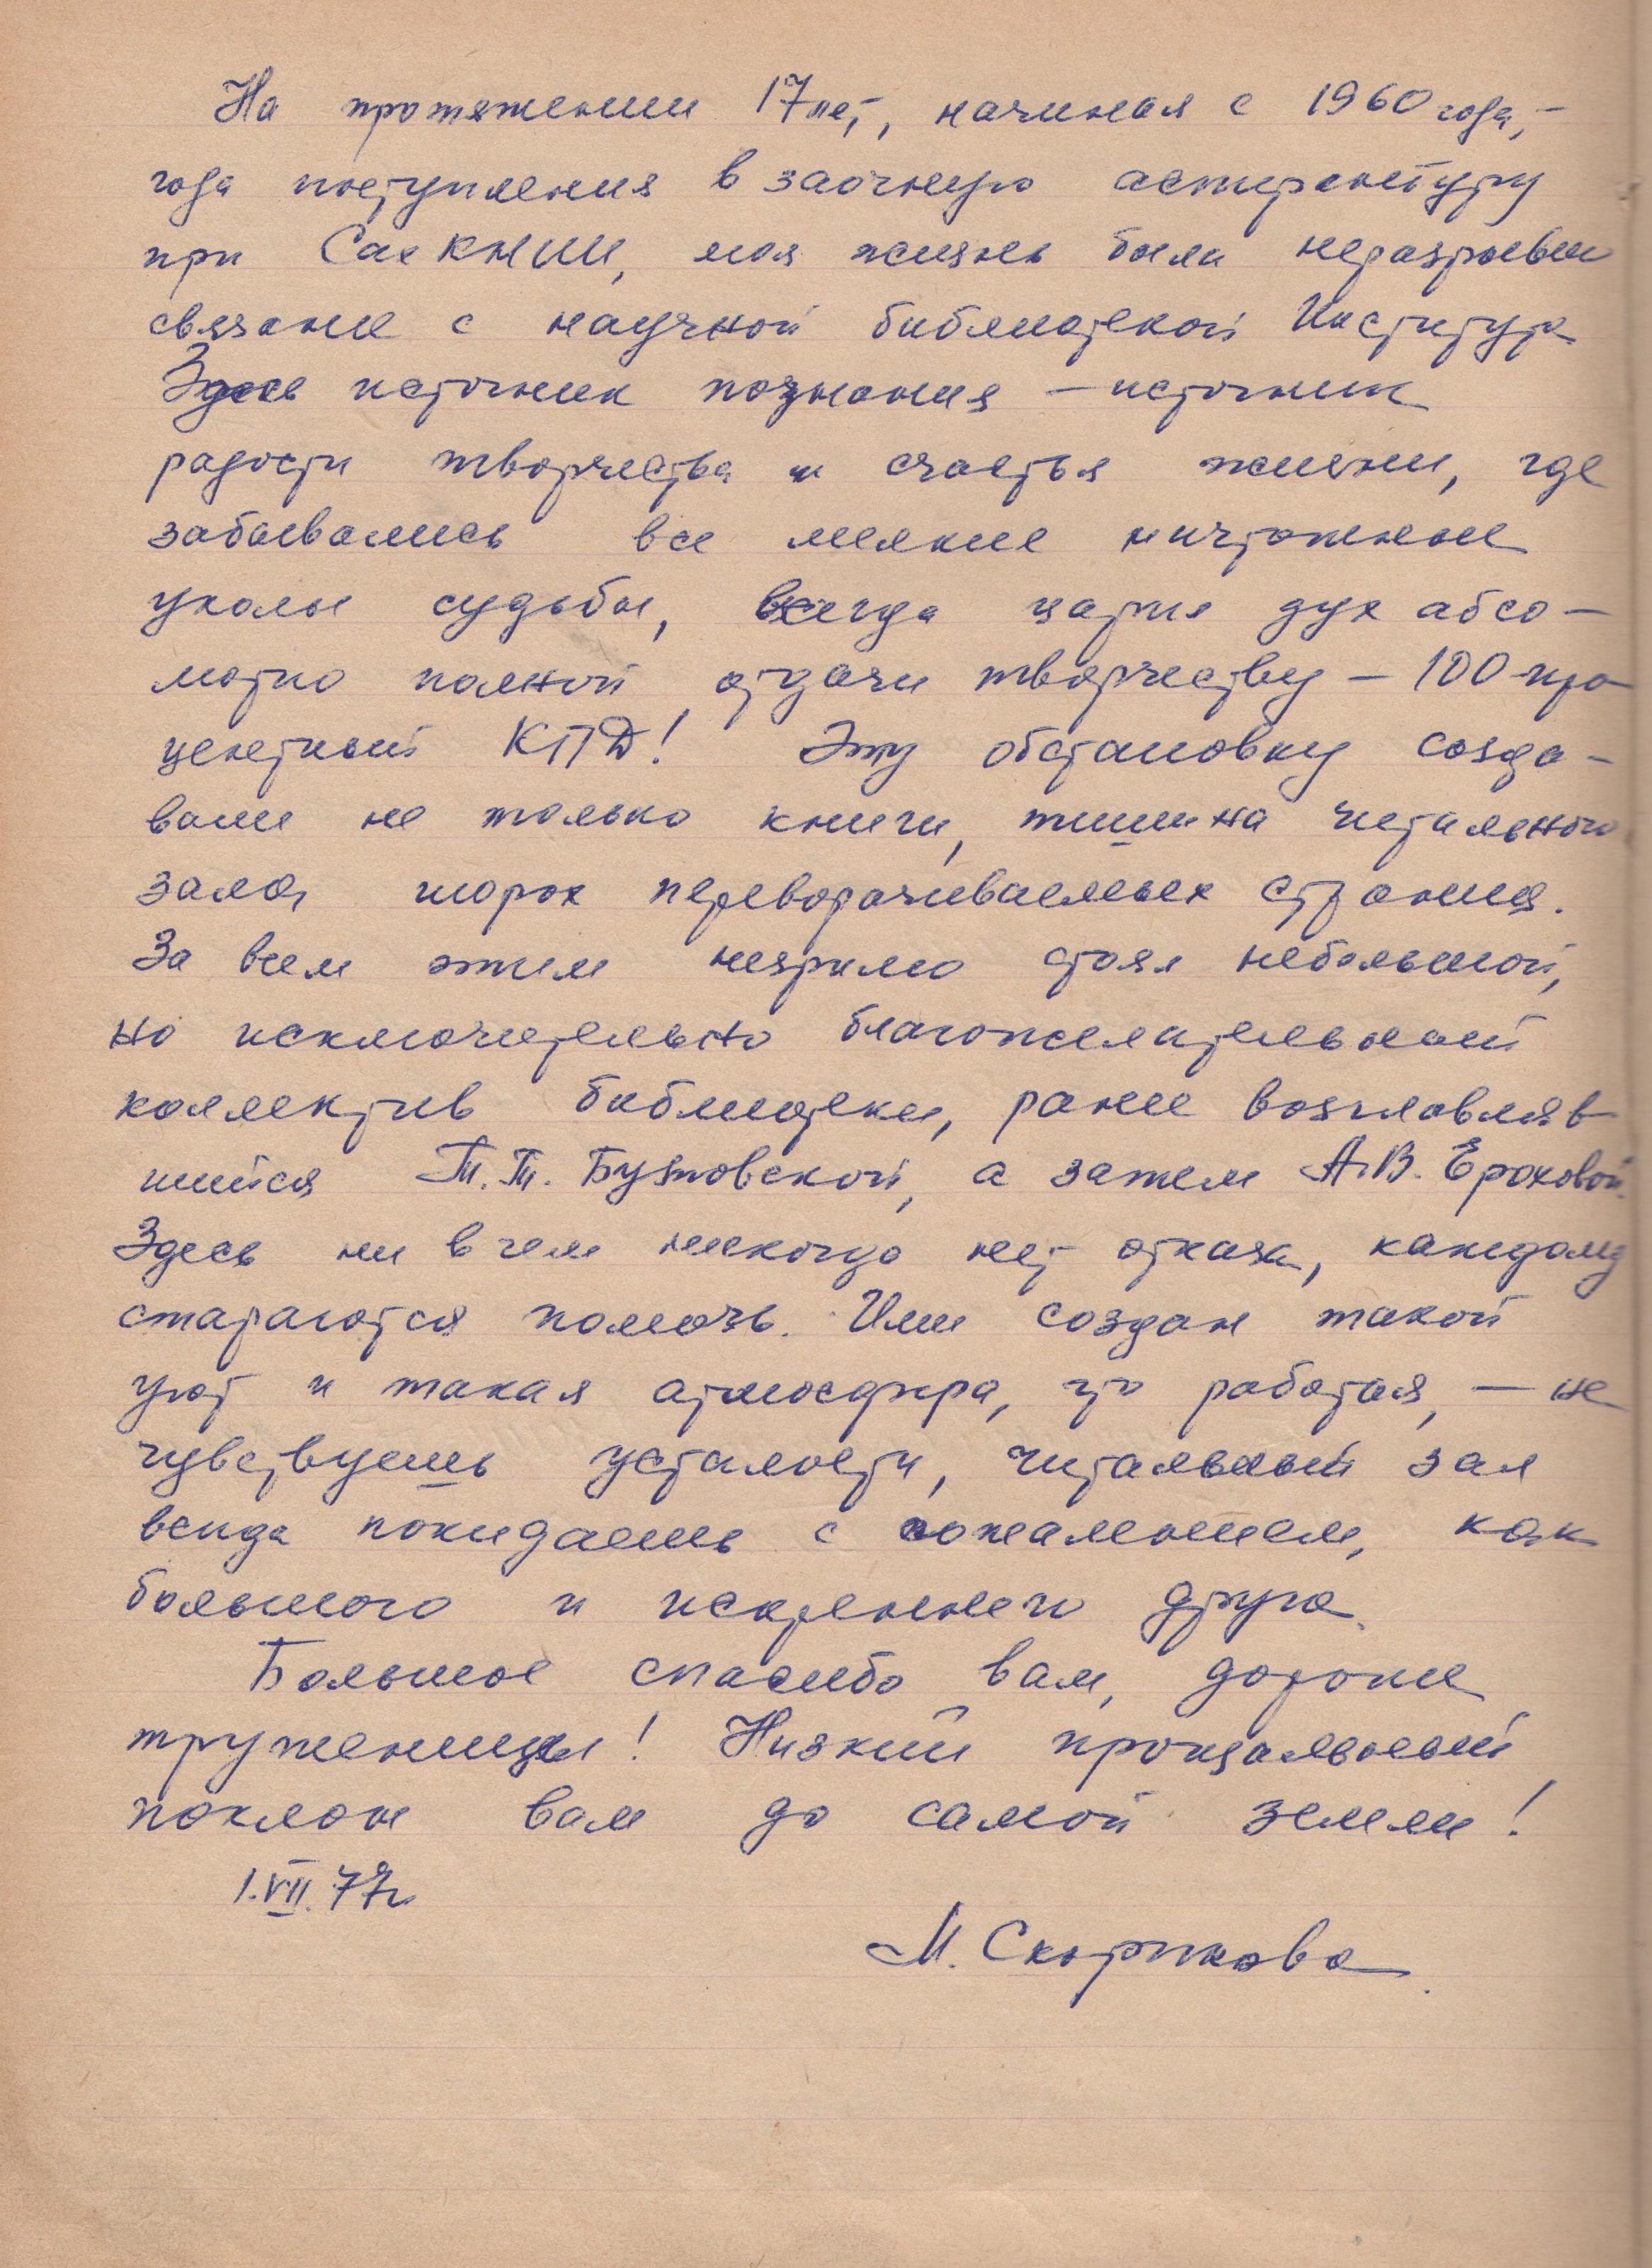 На протяжении 17 лет, начиная с 1960 года, –
года поступления в заочную аспирантуру
при СахКНИИ, моя жизнь была неразрывно
связана с научной библиотекой Института
Здесь источник познания – источник
радости творчества и счастья жизни, где
забывались все мелкие ничтожные
уколы судьбы, всегда царил дух абсо–
лютно полной отдачи творчеству – 100-про
центный КПД! Эту обстановку созда–
вали не только книги, тишина читального
зала, шорох переворачиваемых страниц.
За всем этим незримо стоял небольшой,
но исключительно благожелательный
коллектив библиотеки, ранее возглавляв–
шийся Т.Т. Бутовской, а затем А.В. Ероховой.
Здесь ни в чем никогда нет отказа, каждому
стараются помочь. Ими создан такой
уют и такая атмосфера, что работая, – не
чувствуешь усталости, читальный зал
всегда покидаешь с сожалением, как
большого и искреннего друга.
Большое спасибо вам, дорогие
труженицы! Низкий прощальный
поклон вам до самой земли!
1.VII.77г
М. Скорикова